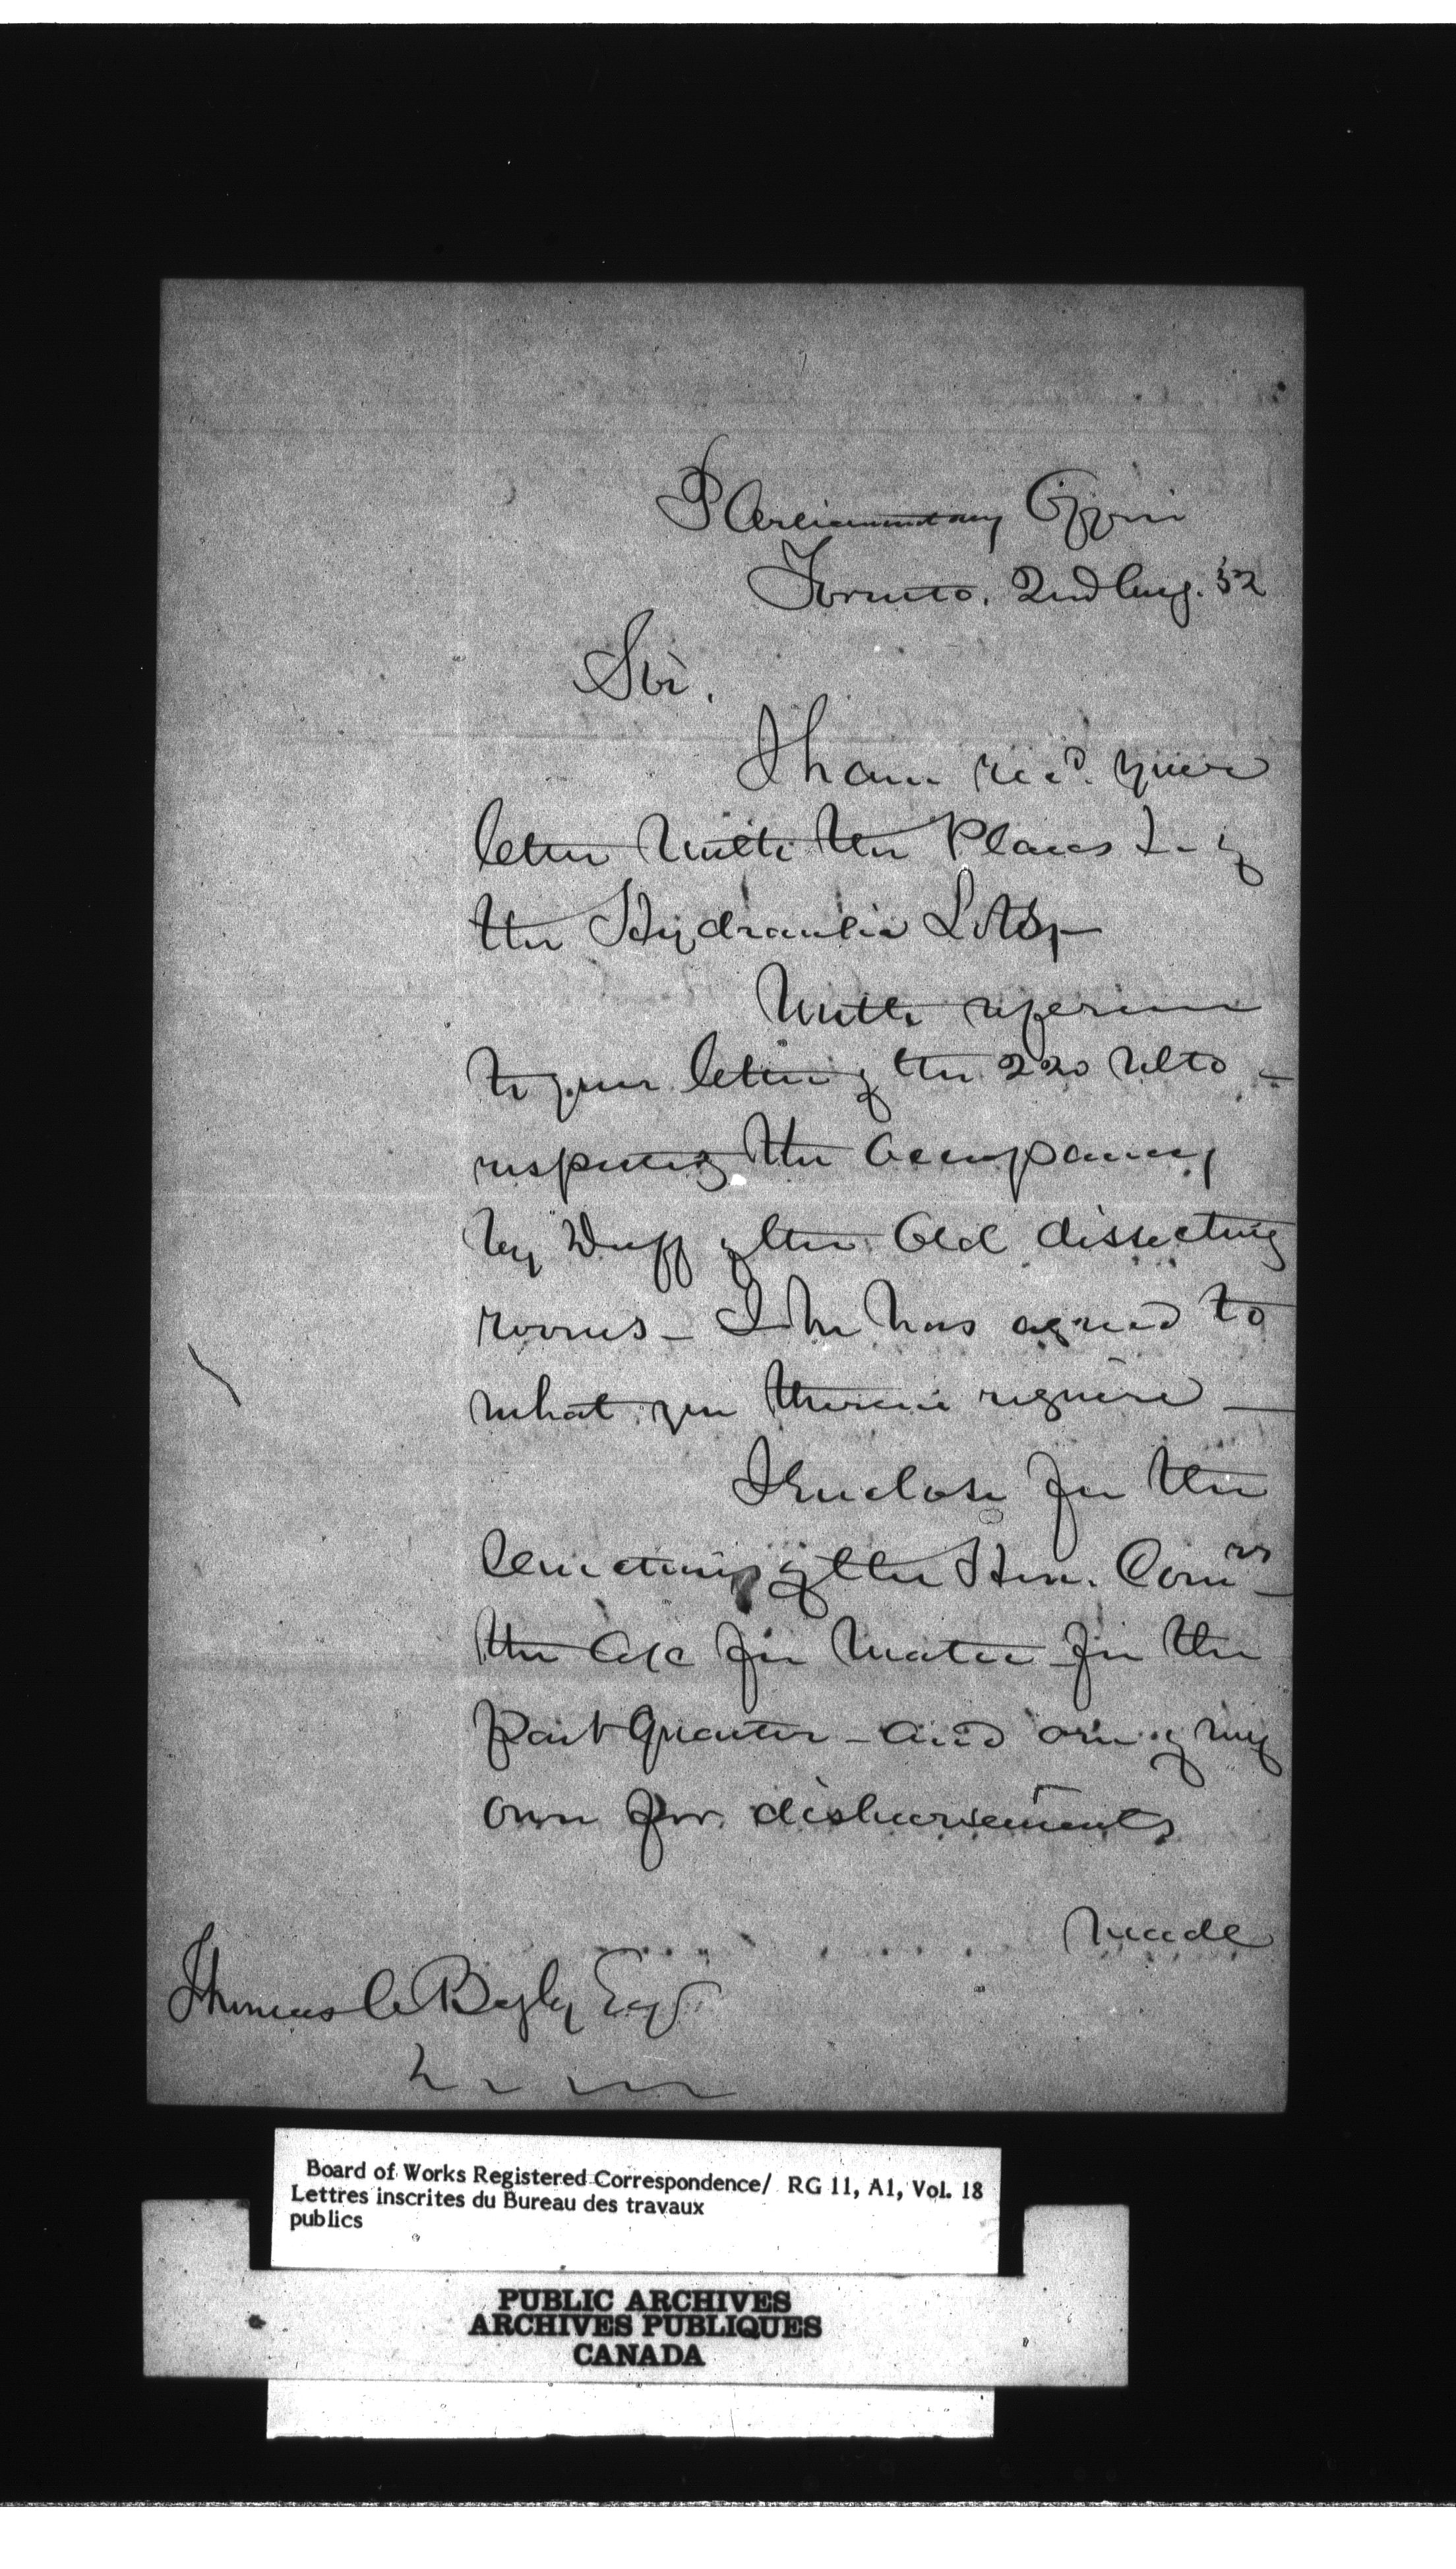 Parliamentary Office
Toronto. 2nd Aug. 52
Sir.
I have rec'd. your
letter with the Plans &c of
the Hydraulic Lots,
With reference
to your letter of the 22d Ulto -
respecting the Occupancy
by Duff of the Old dissecting
rooms - he has agreed to
what you therein require -
I Enclose for the
of the Hon. Comrs
the a/c for Water for the
past Quarter - and one of my
own for disbursements
made
Thomas A Begly Esqr
Board of Works Registered Correspondence/ RG 11, A1, Vol. 18
Lettres inscrites du Bureau des travaux
publics
PUBLIC ARCHIVES
ARCHIVES PUBLIQUES
CANADA